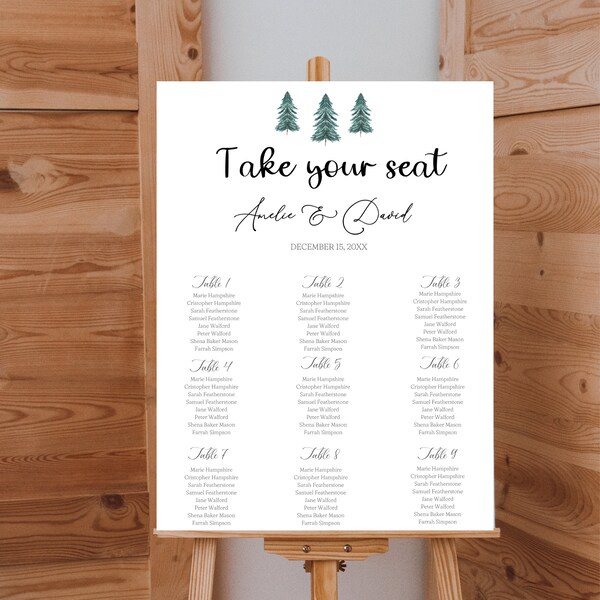 Take your seat
Amelie & David
DECEMBER 15, 20XX
Table 1
Marie Hampshire
Cristopher Hampshire
Sarah Featherstone
Samuel Featherstone
Jane Walford
Peter Walford
Shena Baker Mason
Farrah Simpson
Table 2
Marie Hampshire
Cristopher Hampshire
Sarah Featherstone
Samuel Featherstone
Jane Walford
Peter Walford
Shena Baker Mason
Farrah Simpson
Table 3
Marie Hampshire
Cristopher Hampshire
Sarah Featherstone
Samuel Featherstone
Jane Walford
Peter Walford
Shena Baker Mason
Farrah Simpson
Table 4
Marie Hampshire
Cristopher Hampshire
Sarah Featherstone
Samuel Featherstone
Jane Walford
Peter Walford
Shena Baker Mason
Farrah Simpson
Table 5
Marie Hampshire
Cristopher Hampshire
Sarah Featherstone
Samuel Featherstone
Jane Walford
Peter Walford
Shena Baker Mason
Farrah Simpson
Table 6
Marie Hampshire
Cristopher Hampshire
Sarah Featherstone
Samuel Featherstone
Jane Walford
Peter Walford
Shena Baker Mason
Farrah Simpson
Table 7
Marie Hampshire
Cristopher Hampshire
Sarah Featherstone
Samuel Featherstone
Jane Walford
Peter Walford
Shena Baker Mason
Farrah Simpson
Table 8
Marie Hampshire
Cristopher Hampshire
Sarah Featherstone
Samuel Featherstone
Jane Walford
Peter Walford
Shena Baker Mason
Farrah Simpson
Table 9
Marie Hampshire
Cristopher Hampshire
Sarah Featherstone
Samuel Featherstone
Jane Walford
Peter Walford
Shena Baker Mason
Farrah Simpson